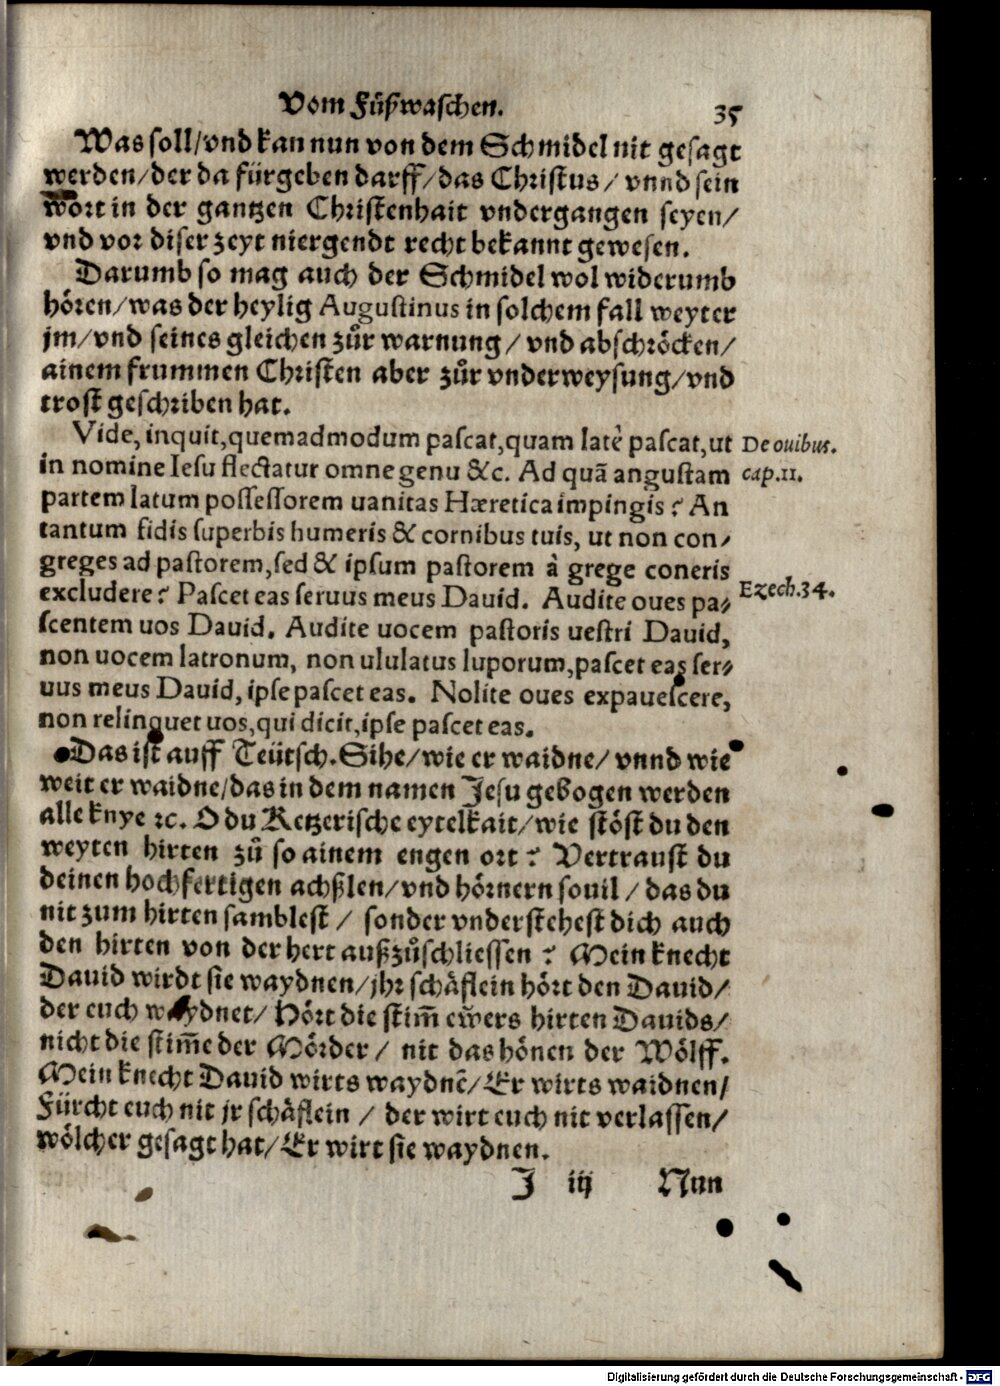 Vom Fůßwaschen. 35
Was soll/vnd kan nun von dem Schmidel nit gesagt
werden/der da fürgeben darff/das Christus/ vnnd sein
wort in der gantzen Christenhait vndergangen seyen/
vnd vor diser zeyt niergendt recht bekannt gewesen.
Darumb so mag auch der Schmidel wol widerumb
hören/was der heylig Augustinus in solchem fall weyter
jm/vnd seines gleichen zůr warnung/ vnd abschröcken/
ainem frummen Christen aber zůr vnderweysung/vnd
trost geschriben hat.
Vide, inquit,quemadmodum pascat,quam latè pascat,ut
De ouibus.
in nomine Iesu flectatur omne genu &c. Ad quã angustam
cap.11.
partem latum possessorem uanitas Hæretica impingis? An
tantum fidis superbis humeris & cornibus tuis, ut non con-
greges ad pastorem,sed & ipsum pastorem à grege coneris
excludere? Pascet eas seruus meus Dauid. Audite oues pa-
Ezech.34.
scentem uos Dauid. Audite uocem pastoris uestri Dauid,
non uocem latronum, non ululatus luporum,pascet eas ser-
uus meus Dauid, ipse pascet eas. Nolite oues expauescere,
non relinquet uos,qui dicit,ipse pascet eas.
Das ist auff Teütsch.Sihe/wie er waidne/ vnnd wie
weit er waidne/das in dem namen Jesu gebogen werden
alle knye ꝛc. O du Ketzerische eytelkait/wie stöst du den
weyten hirten zů so ainem engen ort? Vertraust du
deinen hochfertigen achßlen/vnd hörnern souil/ das du
nit zum hirten samblest/ sonder vnderstehest dich auch
den hirten von der hert außzůschliessen? Mein knecht
Dauid wirdt sie waydnen/jhr schäflein hört den Dauid/
der euch waydnet/ Hört die stim̃ ew̃ers hirten Dauids/
nicht die stim̃e der Mörder/ nit das hönen der Wölff.
Mein knecht Dauid wirts waydnẽ/Er wirts waidnen/
Fürcht euch nit jr schäflein/ der wirt euch nit verlassen/
wölcher gesagt hat/Er wirt sie waydnen.
J iij Nun
Digitalisierung gefördert durch die Deutsche Forschungsgemeinschaft - DFG